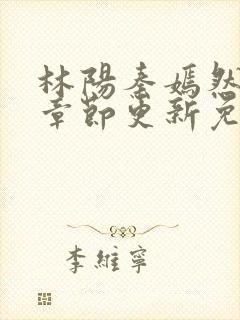 林陽秦嫣然
章節更新免
李維寧